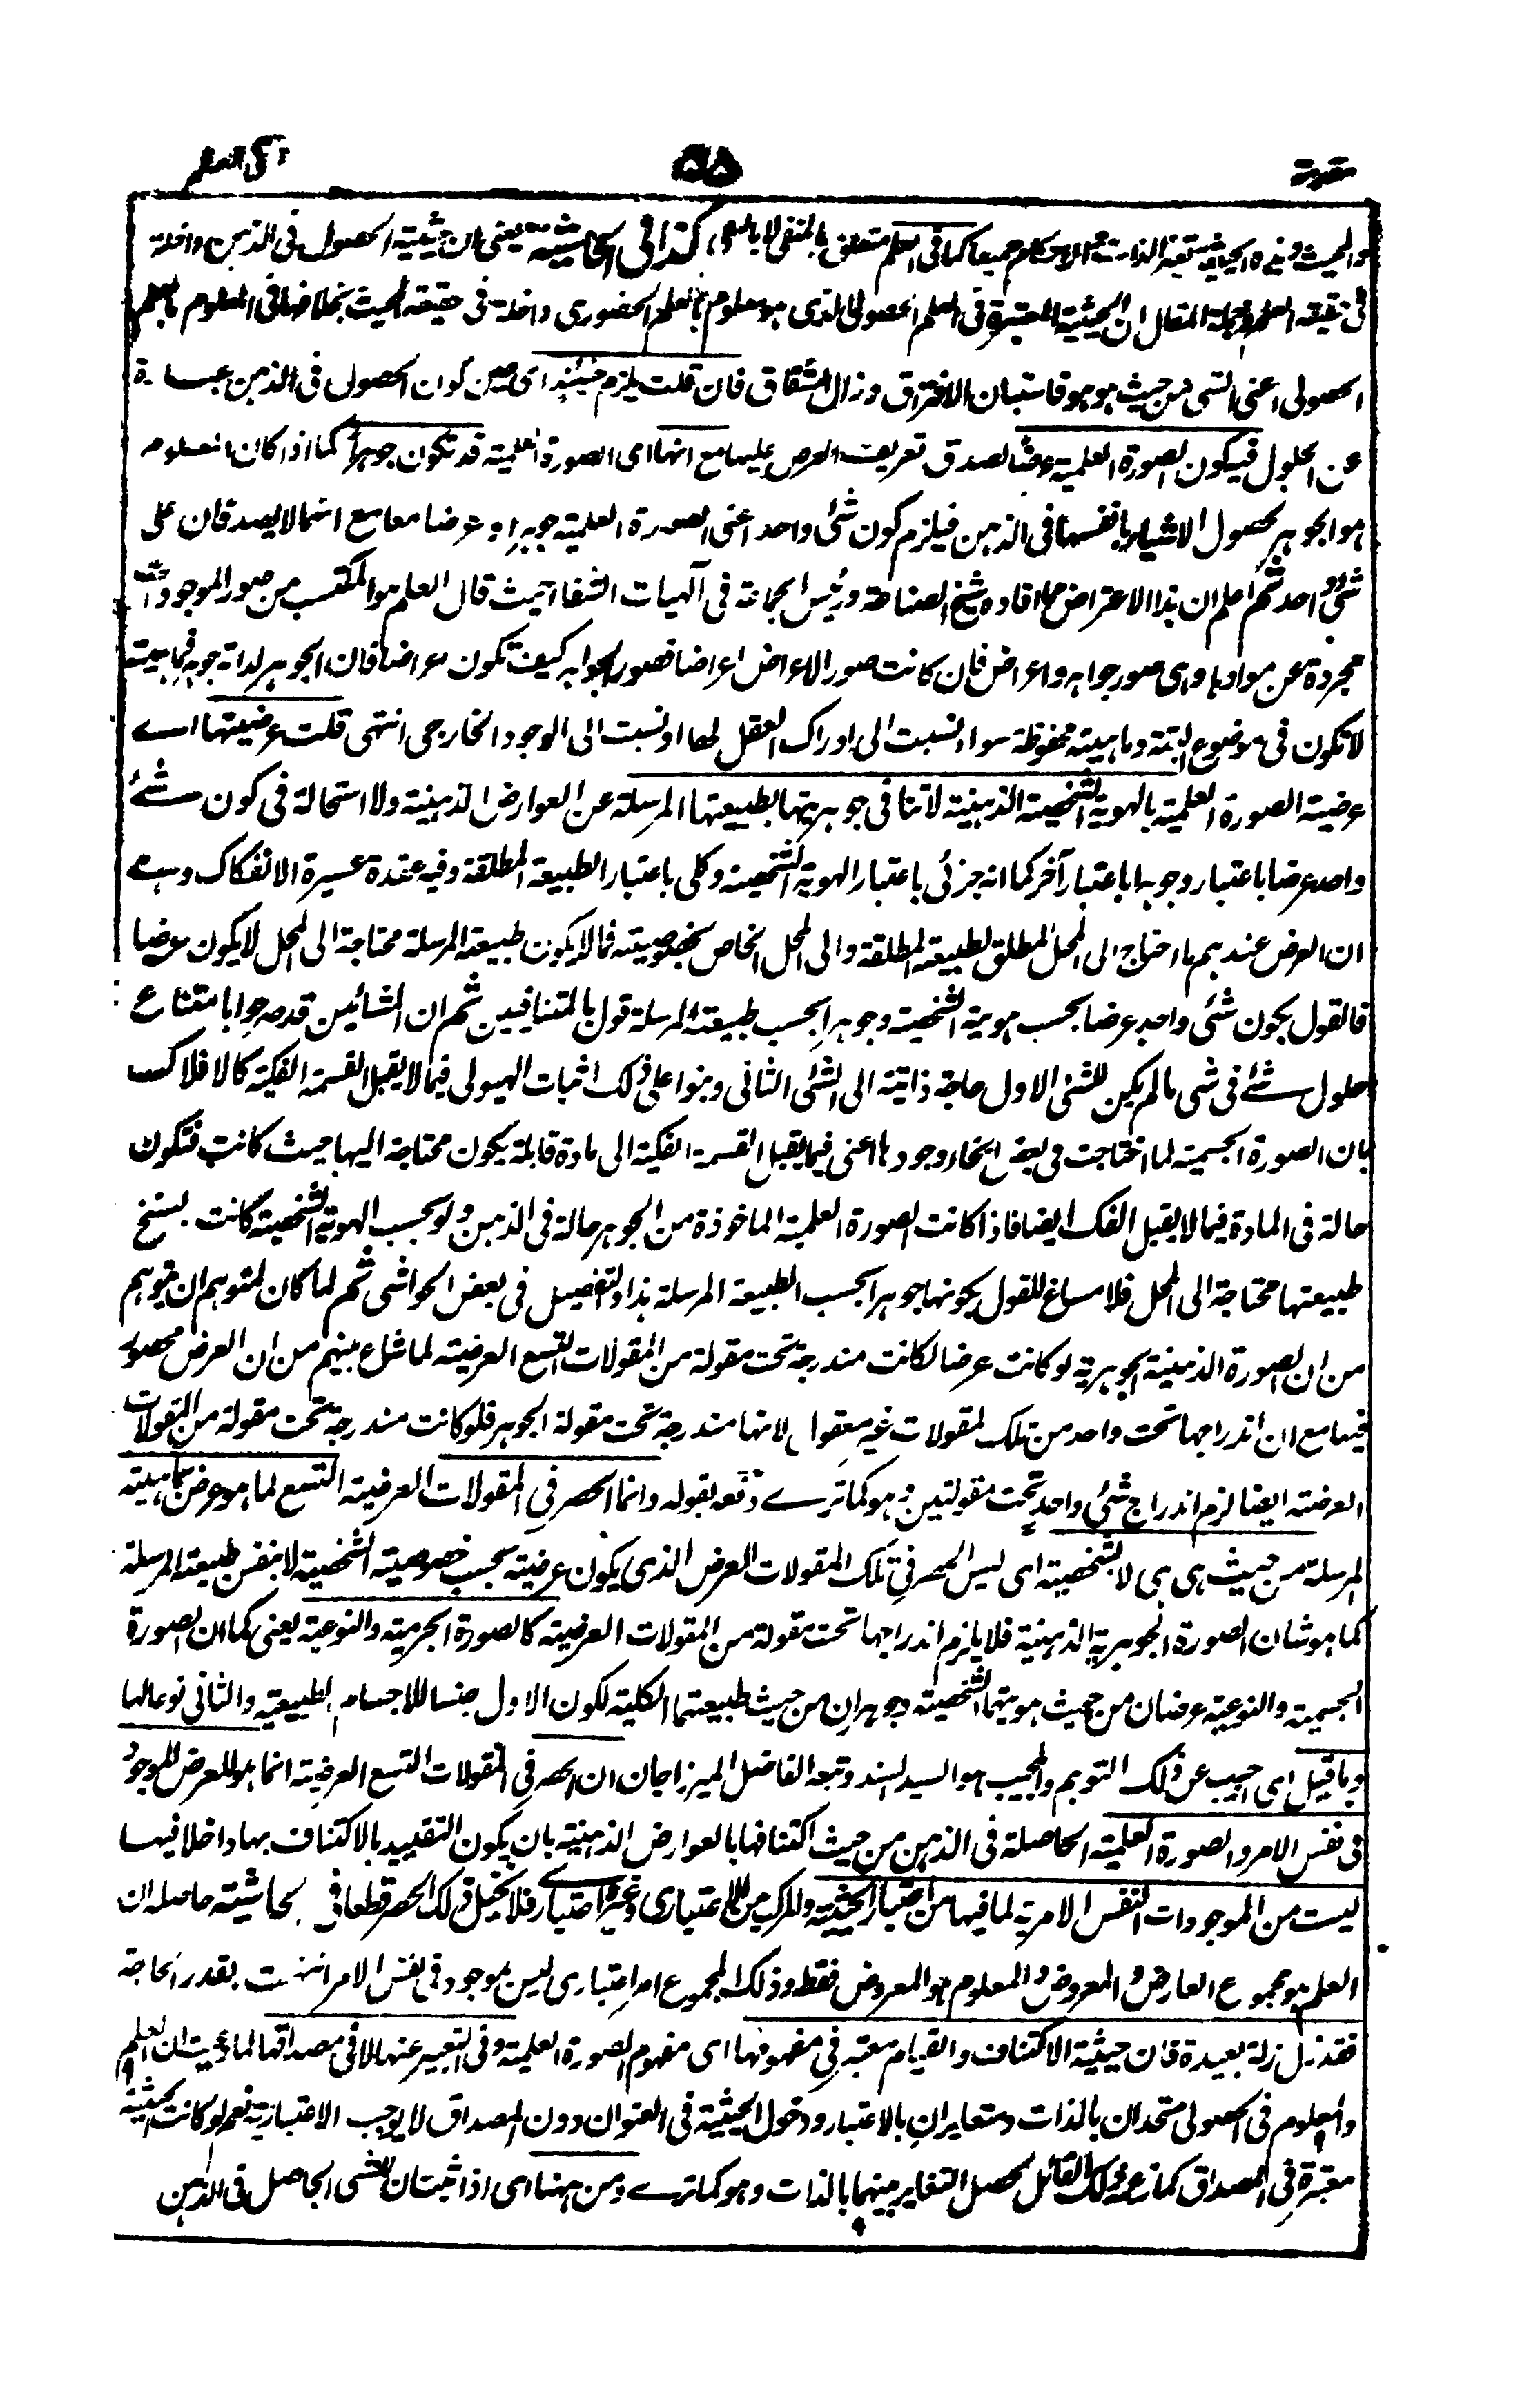 مقدمة
۵۵
والحيث وهذه الحيثية تغير الذات الاحكام جميعا كما فى العلم متعلق بالمنفى لا بالعلم كذا فى الحاشية يعنى ان حيثية الحصول فى الذهن داخلة
فى حقيقة العلم وجملة المقال ان الحيثية المعتبرة فى العلم الحصولى الذى هو معلوم بالعلم الحضورى داخلة فى حقيقة الحيث بخلافها فى المعلوم بالعلم
الحصولى اعنى الشى من حيث هو هو فاستبان الافتراق وزال الشقاق فان قلت يلزم حينئذ اى حين كون الحصول فى الذهن عبارة
عن الحلول فيكون الصورة العلمية عرضا لصدق تعريف العرض عليها مع انها اى الصورة العلمية قد تكون جوهرا كما اذا كان المعلوم
هو الجوهر لحصول الاشياء بانفسها فى الذهن فيلزم كون شئ واحد اعنى الصورة العلمية جوهرا وعرضا معا مع انهما لا يصدقان على
شئ واحد ثم اعلم ان هذا الاعتراض مما افاده شيخ الصناعة ورئيس الجماعة فى آلهيات الشفا حيث قال العلم هو المكتسب من صور الموجودات
مجردة عن موادها وهى صور جواهر واعراض فان كانت صور الاعراض اعراضا فصور الجواهر كيف تكون اعراضا فان الجوهر لذاته جوهر فماهيته
لا تكون فى موضوع البتة وماهيته محفوظة سواء نسبت الى ادراك العقل لها او نسبت الى الوجود الخارجى انتهى قلت عرضيتها اے
عرضية الصورة العلمية بالهوية الشخصية الذهنية لا تنافى جوهريتها بطبيعتها المرسلة عن العوارض الذهنية ولا استحالة فى كون شئ
واحد عرضا باعتبار وجوهرا باعتبار آخر كما انه جزئى باعتبار الهوية الشخصية وكلى باعتبار الطبيعة المطلقة وفيه عقدة عسيرة الانفكاك وهے
ان العرض عندهم ما احتاج الى المحل المطلق لطبيعته المطلقة والى المحل الخاص بخصوصيته فما لا يكون طبيعته المرسلة محتاجة الى المحل لا يكون عرضا
فالقول بكون شئ واحد عرضا بحسب هويته الشخصية وجوهرا بحسب طبيعته المرسلة قول بالمتنافيين ثم ان المشائين قد صرحوا بامتناع
حلول شئ فى شى ما لم يكن للشئ الاول حاجة ذاتية الى الشئ الثانى وبنوا على ذلك اثبات الهيولى فيما لا يقبل القسمة الفكية كالافلاك
بان الصورة الجسمية لما احتاجت فى بعض انحاء وجودها اعنى فيما يقبل القسمة الفكية الى مادة قابلة يكون محتاجة اليها حيث كانت فتكون
حالة فى المادة فيما لا يقبل الفك ايضا فاذا كانت الصورة العلمية الماخوذة من الجوهر حالة فى الذهن ولو بحسب الهوية الشخصية كانت بسنخ
طبيعتها محتاجة الى المحل فلا مساغ للقول بكونها جوهرا بحسب الطبيعة المرسلة هذا والتفصيل فى بعض الحواشى ثم لما كان لمتوهم ان يتوهم
من ان الصورة الذهنية الجوهرية لو كانت عرضا لكانت مندرجة تحت مقولة من المقولات التسع العرضية لما شاع بينهم من ان العرض محصور
فيها مع ان اندراجها تحت واحد من تلك المقولات غير معقول لانها مندرجة تحت مقولة الجوهر فلو كانت مندرجة تحت مقولة من المقولات
العرضية ايضا لزم اندراج شئ واحد تحت مقولتين وهو كما ترے دفعه بقوله وانما الحصر فى المقولات العرضية التسع لما هو عرض بماهيته
المرسلة من حيث هى هى لا بشخصيته اى ليس الحصر فى تلك المقولات العرض الذى يكون عرضيته بحسب خصوصيته الشخصية لا بنفس طبيعته المرسلة
كما هو شان الصورة الجوهرية الذهنية فلا يلزم اندراجها تحت مقولة من المقولات العرضية كالصورة الجرمية والنوعية يعنى كما ان الصورة
الجسمية والنوعية عرضان من حيث هويتهما الشخصية وجوهران من حيث طبيعتهما الكلية لكون الاول جنسا للاجسام الطبيعية والثانى نوعا لها
وما قيل اى اجيب عن ذلك التوهم والمجيب هو السيد السند وتبعه الفاضل الميرزا جان ان الحصر فى المقولات التسع العرضية انما هو للعرض الموجود
فى نفس الامر والصورة العلمية الحاصلة فى الذهن من حيث اكتنافها بالعوارض الذهنية بان يكون التقييد بالاكتناف بها داخلا فيها
ليست من الموجودات النفس الامرية لما فيها من اعتبار الحيثية والمركب من الاعتبارى وغيره اعتبارے فلا يخل ذلك الحصر قطعا فى الحاشية حاصله ان
العلم هو مجموع العارض والمعروض والمعلوم هو المعروض فقط وذلك المجموع امر اعتبارى ليس بموجود فى نفس الامر انتهت بقدر الحاجة
فقد زل زلة بعيدة فان حيثية الاكتناف والقيام معتبر فى مفهومها اى مفهوم الصورة العلمية وفى التعبير عنها لا فى مصداقها لما دريت ان العلم
والمعلوم فى الحصولى متحدان بالذات ومتغايران بالاعتبار ودخول الحيثية فى العنوان دون المصداق لا يوجب الاعتبارية نعم لو كانت الحيثية
معتبرة فى المصداق كما زعمه ذلك القائل لحصل التغاير بينهما بالذات وهو كما ترے ومن ههنا اى اذا ثبت ان الشى الحاصل فى الذهن